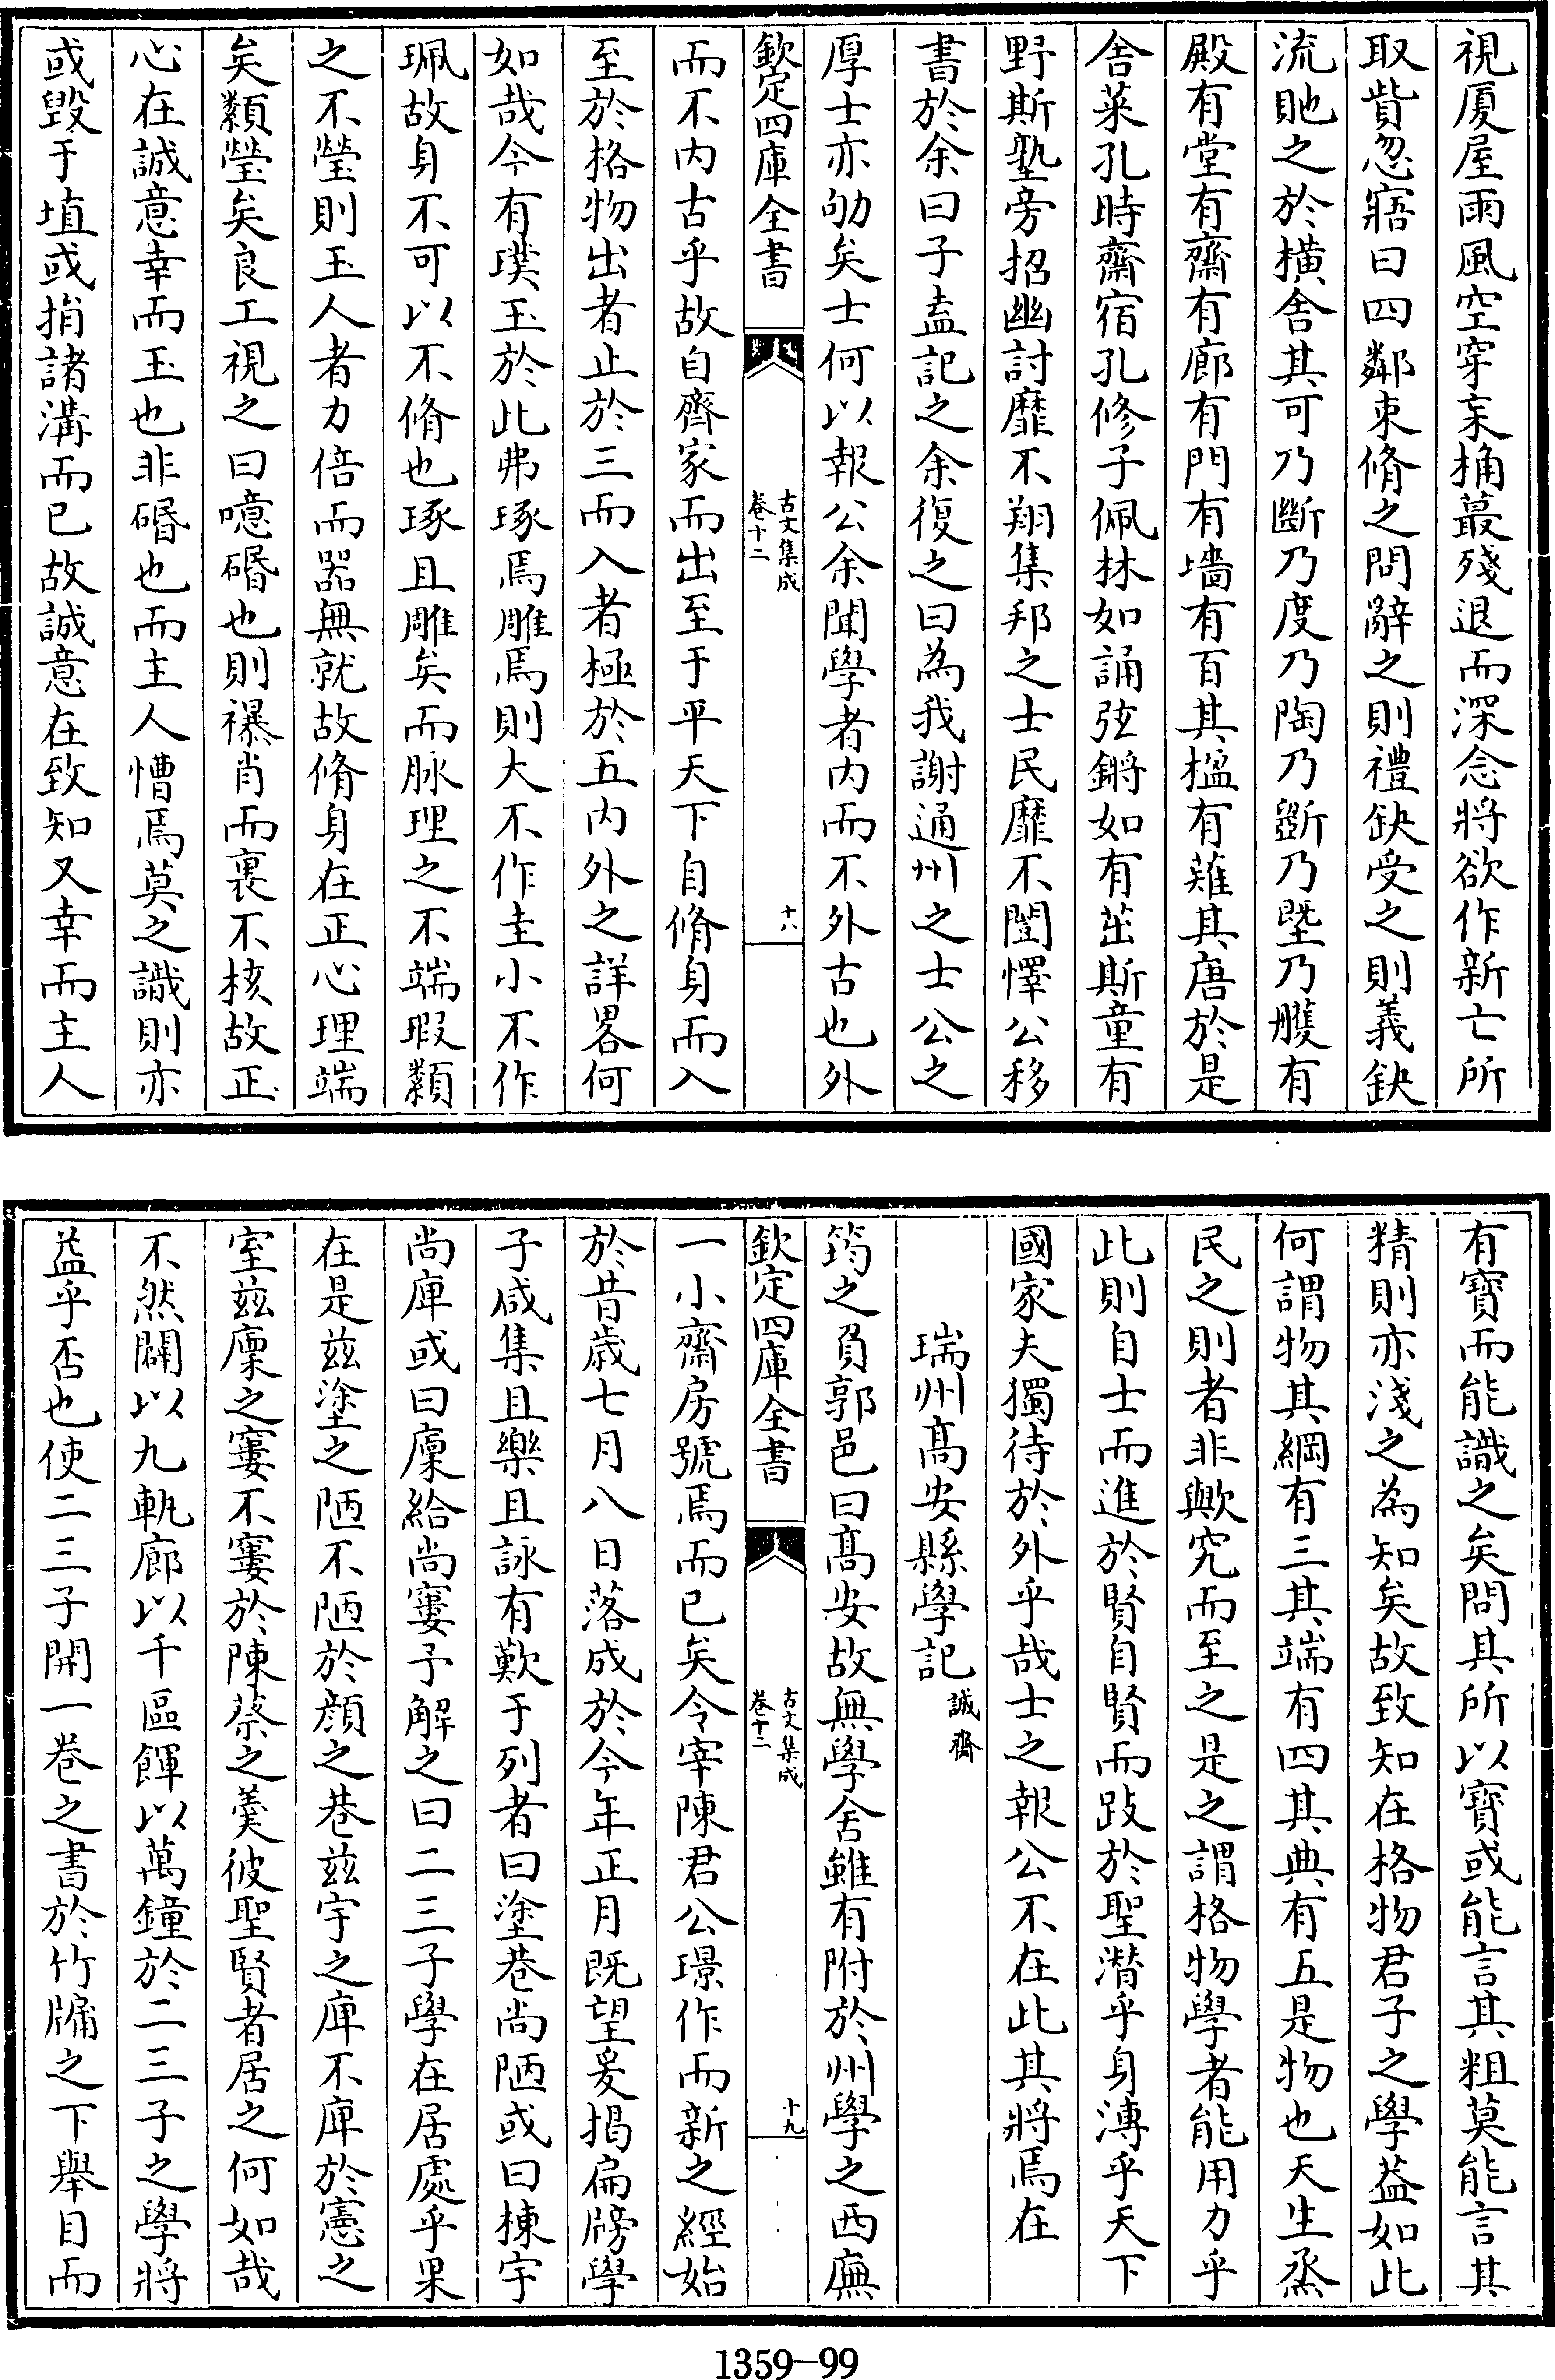 視厦屋雨風空穿宲桷蕞殘退而深念將欲作新亡所
取貲忽寤曰四鄰束脩之問辭之則禮缺受之則義缺
流眂之於横舎其可乃斷乃度乃陶乃斵乃塈乃雘有
殿有堂有齋有廊有門有墻有百其楹有薙其唐於是
舎菜孔時齋宿孔修子佩林如誦弦鏘如有茁斯童有
野斯塾旁招幽討靡不翔集邦之士民靡不誾懌公移
書於余曰子盍記之余復之曰為我謝通州之士公之
厚士亦劬矣士何以報公余聞學者内而不外古也外
欽定四庫全書
古文集成
卷十二
十八
而不内古乎故自齊家而出至于平天下自脩身而入
至於格物出者止於三而入者極於五内外之詳畧何
如哉今有璞玉於此弗琢焉雕焉則大不作圭小不作
珮故身不可以不脩也琢且雕矣而脉理之不端瑕纇
之不瑩則玉人者力倍而器無就故脩身在正心理端
矣纇瑩矣良工視之曰噫碈也則襮肖而裏不核故正
心在誠意幸而玉也非碈也而主人慒焉莫之識則亦
或毁于埴或捐諸溝而已故誠意在致知又幸而主人
有寶而能識之矣問其所以寶或能言其粗莫能言其
精則亦淺之為知矣故致知在格物君子之學葢如此
何謂物其綱有三其端有四其典有五是物也天生烝
民之則者非歟究而至之是之謂格物學者能用力乎
此則自士而進於賢自賢而跂於聖潛乎身溥乎天下
國家夫獨待於外乎哉士之報公不在此其將焉在
瑞州髙安縣學記 誠齋
筠之負郭邑曰髙安故無學舍雖有附於州學之西廡
欽定四庫全書
古文集成
卷十二
十九
一小齋房號焉而已矣令宰陳君公璟作而新之經始
於昔歳七月八日落成於今年正月既望爰掲扁牓學
子咸集且樂且詠有歎于列者曰塗巷尚陋或曰棟宇
尚庳或曰廩給尚寠予解之曰二三子學在居處乎果
在是茲塗之陋不陋於顔之巷茲宇之庳不庳於憲之
室茲廩之寠不寠於陳蔡之羮彼聖賢者居之何如哉
不然闢以九軌廊以千區餫以萬鐘於二三子之學將
益乎否也使二三子開一巻之書於竹牖之下舉目而
1359-99